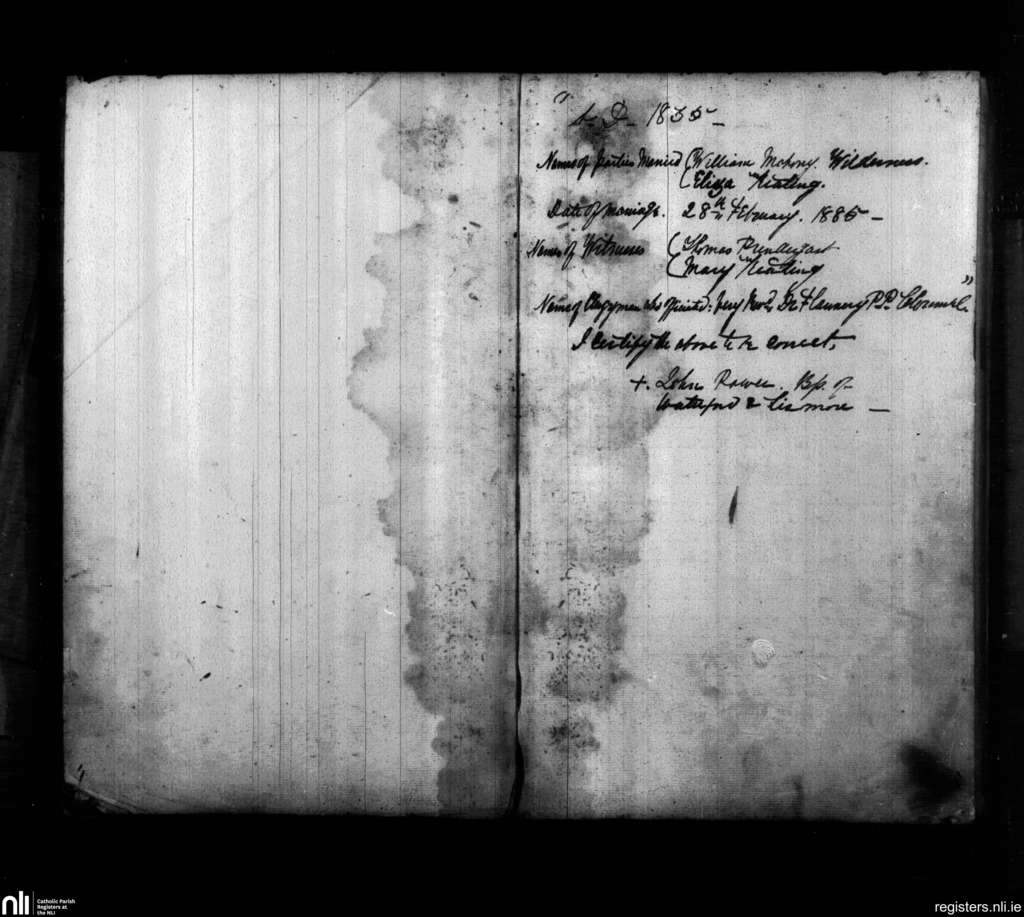 " A. D. 1855 —
Names of parties Married (William Mahony. Wilderness.
(Eliza Keating.
Date of Marriage. 28th February. 1855 —
Names of Witnesses (Thomas Prendergast
(Mary Keating
Name of Clergyman who officiated: Very Revd. Dr Flannery P.P. Clonmel. "
I certify the above to be correct.
+. John Power. Bp. of
Waterford & Lismore —
nli
Catholic Parish
Registers at
the NLI
registers.nli.ie